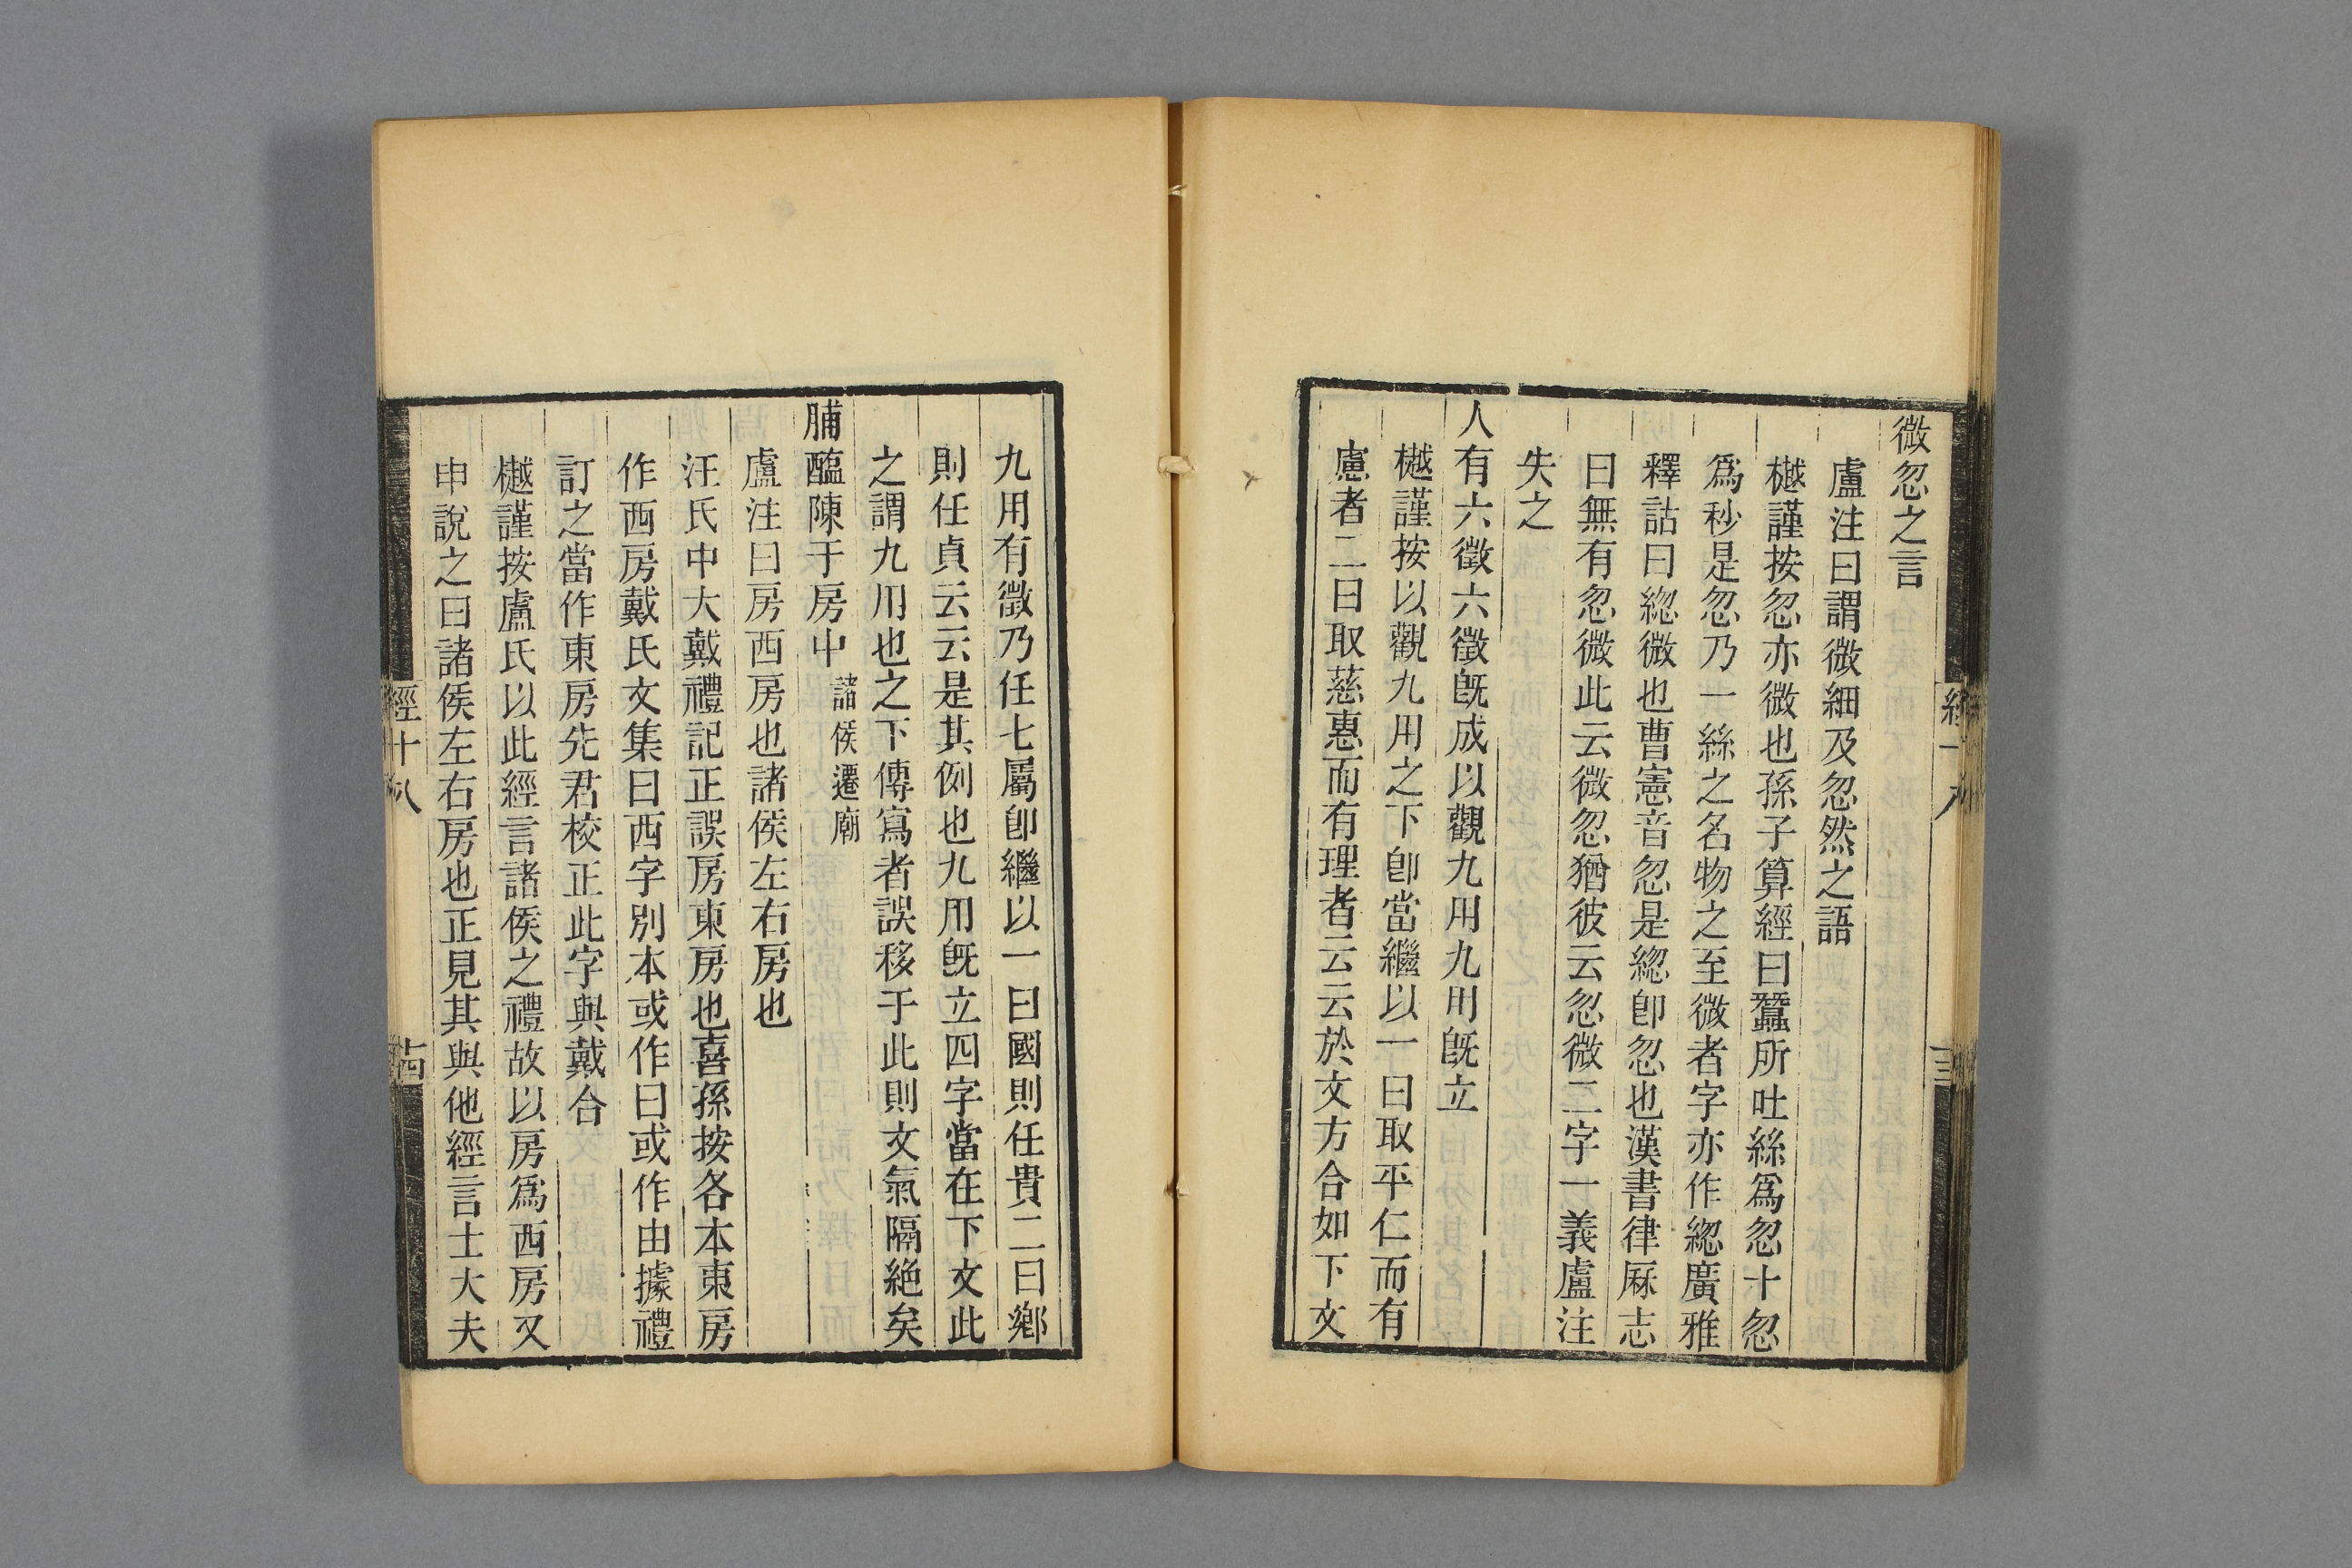 微忽之言
盧注曰謂微細及忽然之語
樾謹按忽亦微也孫子算經曰蠶所吐絲爲忽十忽
爲秒是忽乃一絲之名物之至微者字亦作緫廣雅
釋詁曰緫微也曹憲音忽是緫卽忽也漢書律厤志
曰無有忽微此云微忽猶彼云忽微二字一義盧注
失之
人有六徵六徵旣成以觀九用九用旣立
樾謹按以觀九用之下卽當繼以一曰取平仁而有
慮者二曰取慈惠而有理者云云於文方合如下文
九用有徵乃任七屬卽繼以一曰國則任貴二曰鄉
則任貞云云是其例也九用旣立四字當在下文此
之謂九用也之下傳寫者誤移于此則文氣隔絶矣
脯醢陳于房中 諸侯遷廟
盧注曰房西房也諸侯左右房也
汪氏中大戴禮記正誤房東房也喜孫按各本東房
作西房戴氏文集曰西字別本或作曰或作由據禮
訂之當作東房先君校正此字與戴合
樾謹按盧氏以此經言諸侯之禮故以房爲西房又
申說之曰諸侯左右房也正見其與他經言士大夫
經十八
十四